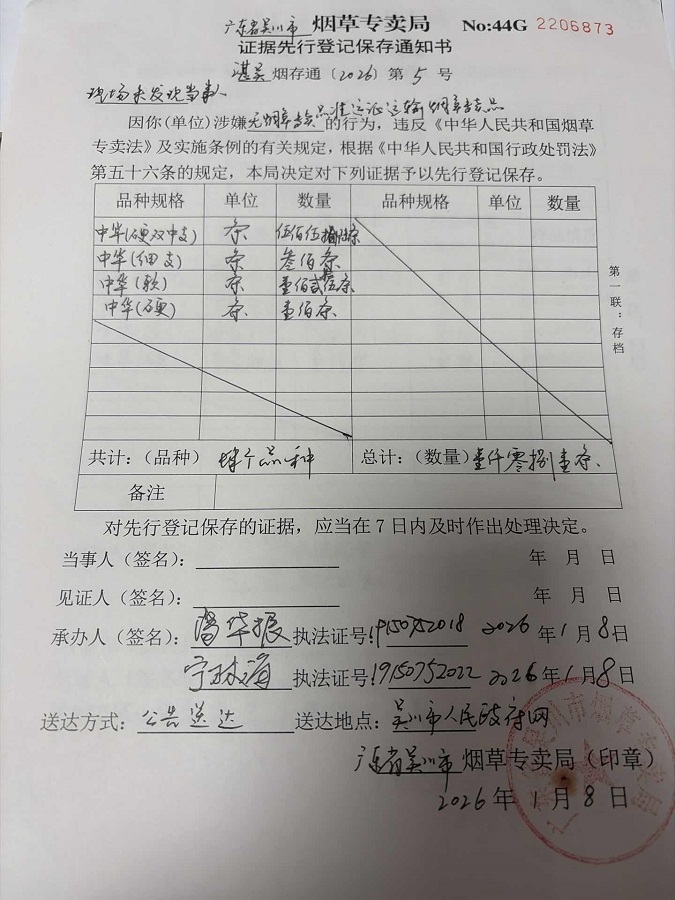 广东省吴川市 烟草专卖局 No:44G 2206873
证据先行登记保存通知书
湛吴 烟存通〔2026〕第 5 号
现场未发现当事人
因你(单位)涉嫌无烟草专卖品准运证运输烟草专卖品的行为，违反《中华人民共和国烟草
专卖法》及实施条例的有关规定，根据《中华人民共和国行政处罚法》
第五十六条的规定，本局决定对下列证据予以先行登记保存。
品种规格 单位 数量 品种规格 单位 数量
中华(硬双中支) 条 伍佰伍拾 条
中华(细支) 条 叁佰条
中华(软) 条 壹佰贰 条
中华(硬) 条 壹佰条
第一联：存档
共计：（品种） 肆个品种 总计：（数量）壹仟零捌 壹条
备注
对先行登记保存的证据，应当在 7 日内及时作出处理决定。
当事人（签名）： 年 月 日
见证人（签名）： 年 月 日
承办人（签名）： 华振 执法证号：19150752018 2026 年 1 月 8 日
宁 海 执法证号：19150752022 2026 年 1 月 8 日
送达方式：公告送达 送达地点：吴川市人民政府网
广东省吴川市 烟草专卖局（印章）
2026 年 1 月 8 日